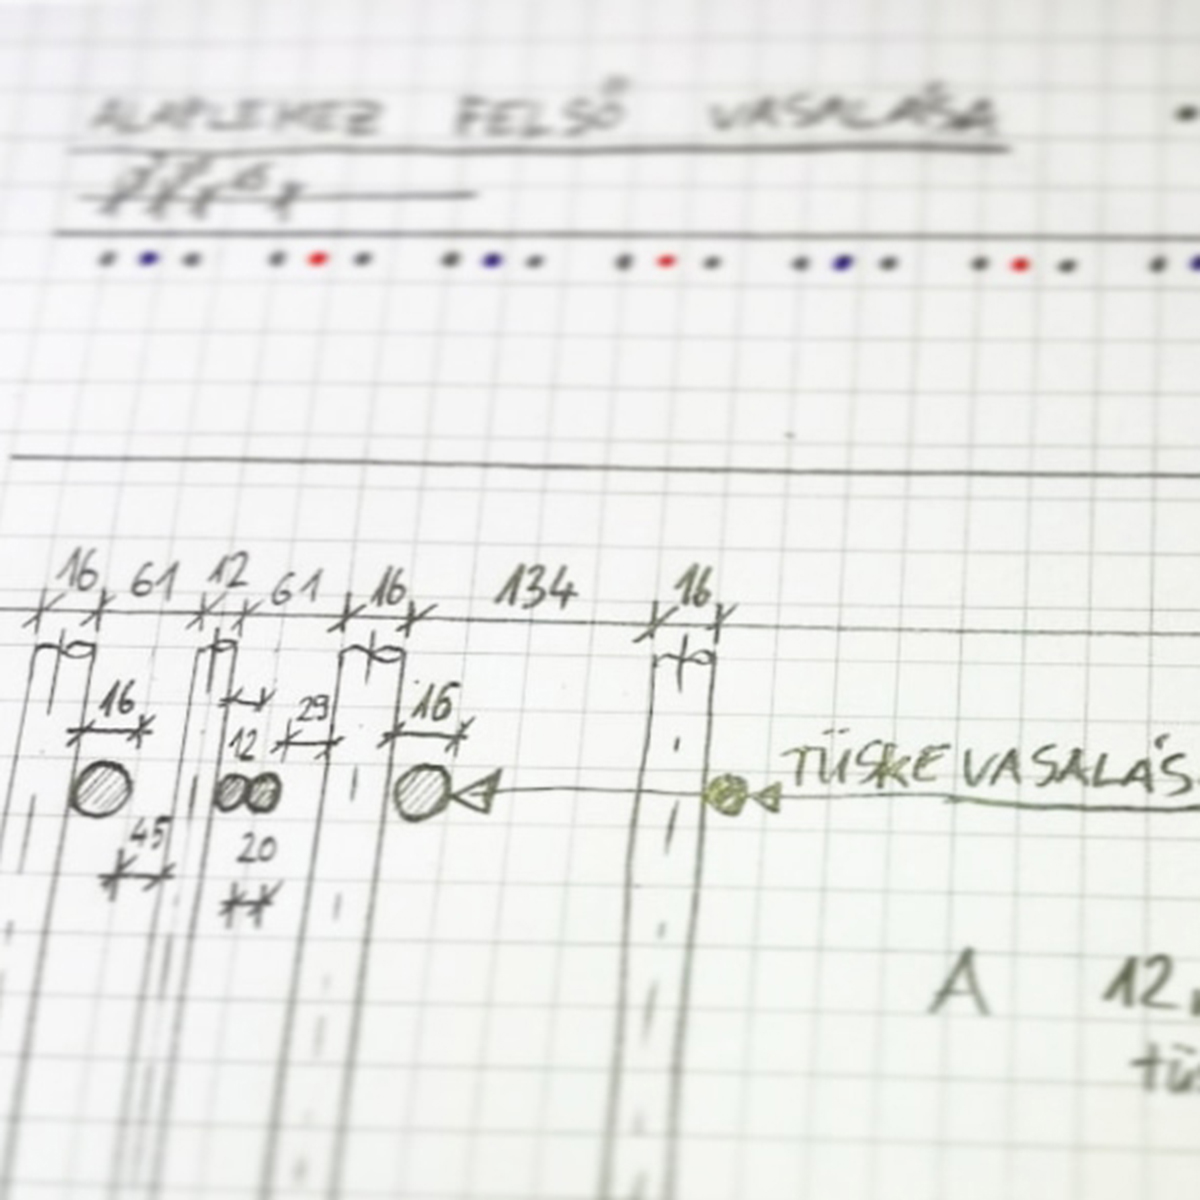 ALAPLEMEZ FELSŐ VASALÁSA
16 61 12 61 16 134 16
16 29 16
12
TÜSKE VASALÁS
45 20
A 12
tü